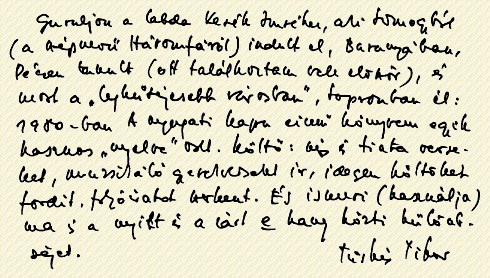 Guruljon a labda Kerék Imréhez, aki Somogyból
(a népnevű Háromfáról) indult el, Baranyában,
Pécsen tanult (ott találkoztam vele először), és
most a „leghűségesebb városban”, Sopronban él:
1980-ban A nyugati kapu című könyvem egyik
hasznos „nyelve” volt. Költő: és tiszta verse-
ket, muzsikáló gyerekverseket ír, idegen költőket
fordít, folyóiratot szerkeszt. És ismeri (használja)
ma is a nyílt és a zárt e hang közti különb-
séget.
Tüskés Tibor